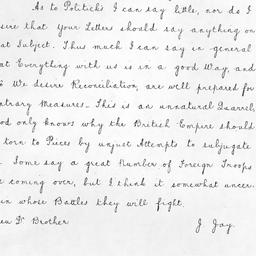 As to Politicks I can say little, nor do I
sire that your Letters should say anything on
at Subject. Thus much I can say in general
at Everything with us is in a good Way, and
We desire Reconciliation, are well prepared for
ntrary Measures_ This is an unnatural Quarrel,
od only knows why the British Empire should
torn to Pieces by unjust Attempts to subjugate
Some say a great Number of Foreign Troops
e coming over, but I think it somewhat uncer-
in whose Battles they will fight.
Brother J Jay.